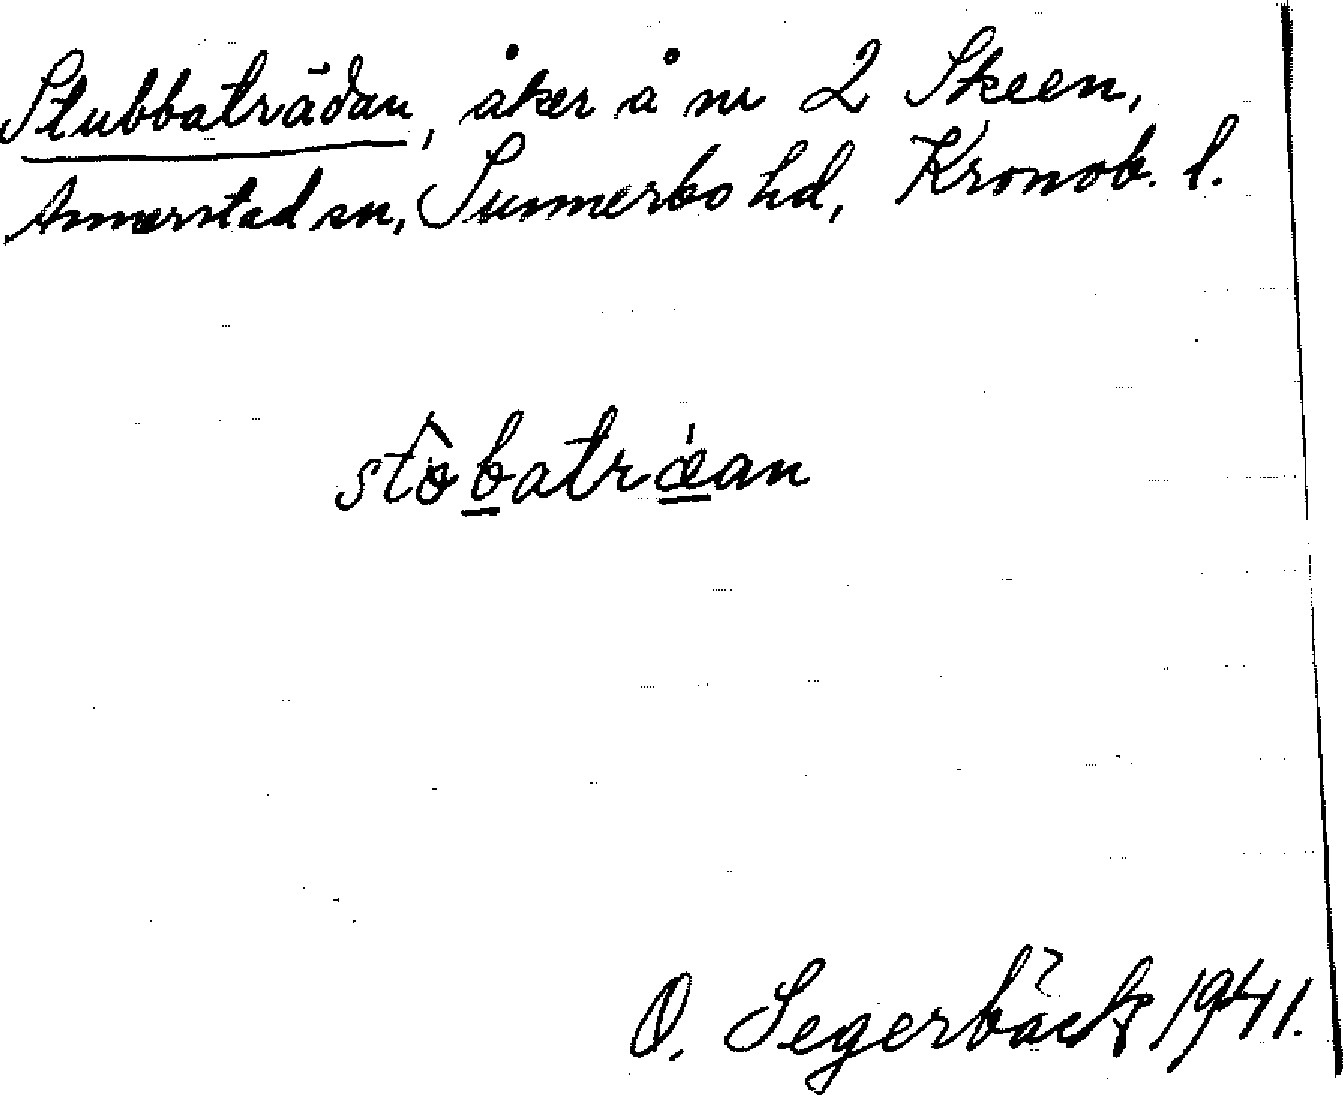 Stubbaträdan, åker å nr 2 Skeen,
Annerstad sn, Sunnerbo hd, Kronob. l.
stòbatrǽan
O. Segerbäck 1941.